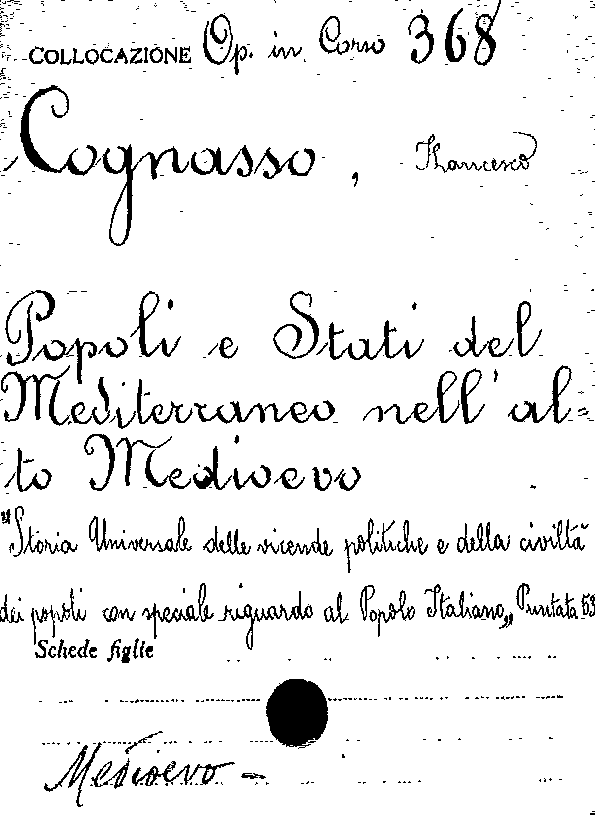 COLLOCAZIONE Op. in Corso 368
Cognasso, Francesco
Popoli e Stati del
Mediterraneo nell'al=
to Medioevo
"Storia Universale delle vicende politiche e della civiltà
dei popoli con speciale riguardo al Popolo Italiano„ Puntata 53
Schede figlie
Medioevo -